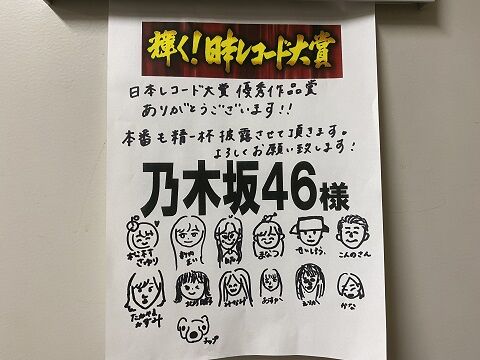 輝く!日本レコード大賞
日本レコード大賞 優秀作品賞
ありがとうございます!!
本番も精一杯披露させて頂きます。
よろしくお願い致します!
乃木坂46様
まなつ
せいしろう
こんのさん
みなみ
あすか
かな
チップ